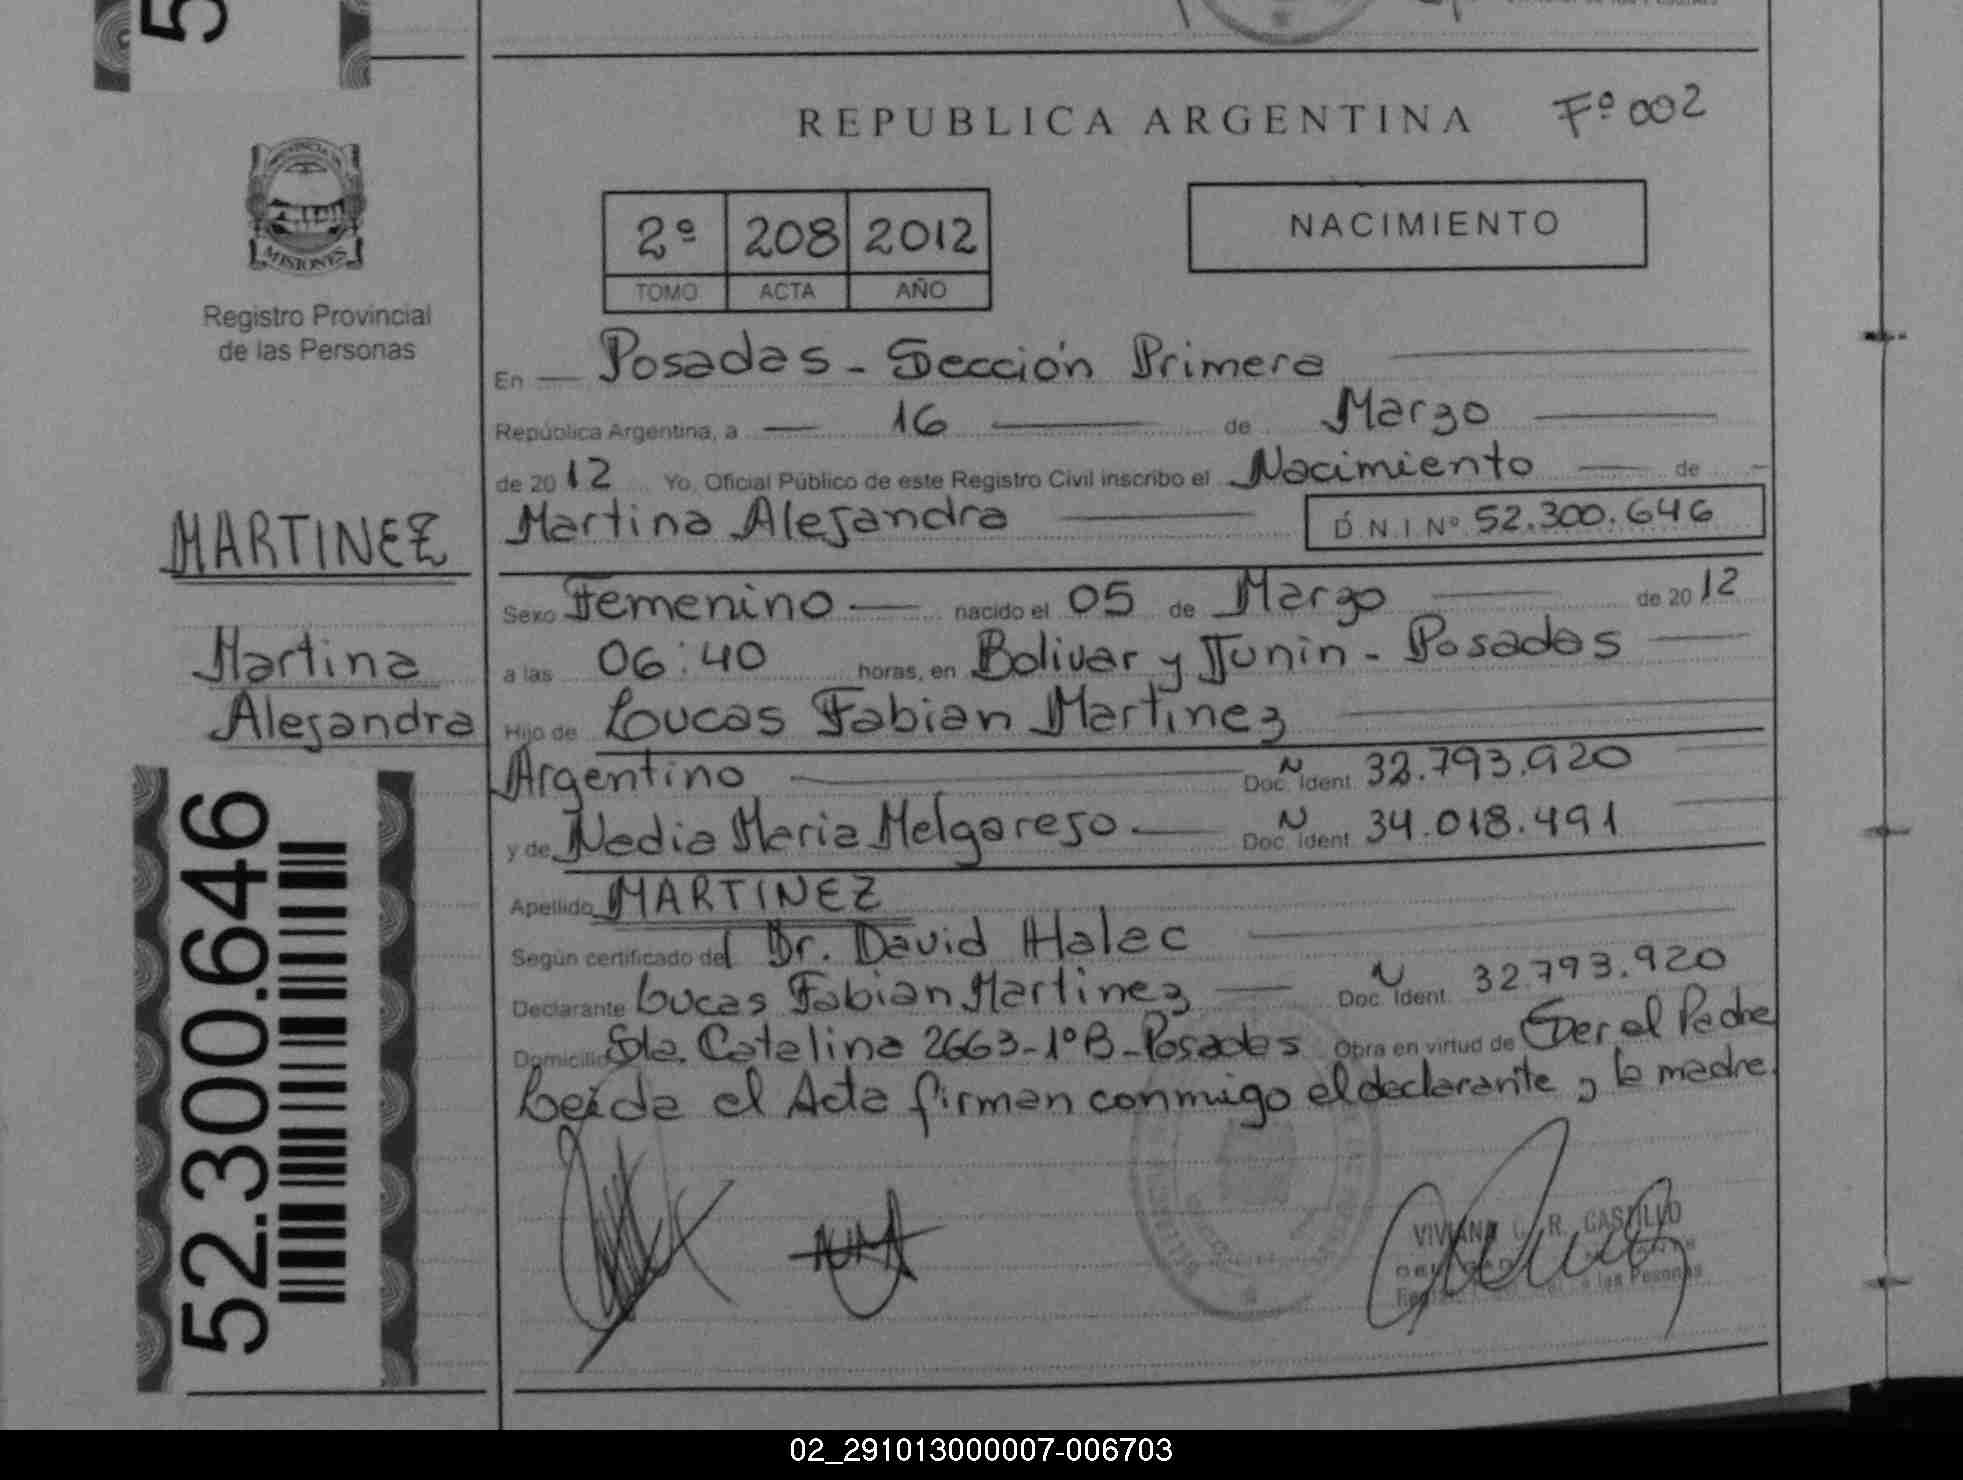 5
REPUBLICA ARGENTINA Fº 002
2º 208 2012
TOMO ACTA AÑO
NACIMIENTO
MISIONES
Registro Provincial
de las Personas
En Posadas - Sección Primera
República Argentina, a 16 de Marzo
de 2012 Yo, Oficial Público de este Registro Civil inscribo el Nacimiento de
Martina Alejandra D.N.I Nº 52.300.646
MARTINEZ
Martina
Alejandra
Sexo Femenino nacido el 05 de Marzo de 2012
a las 06:40 horas, en Bolivar y Junin - Posadas
Hijo de Lucas Fabian Martinez
Argentino Doc. Ident. N 32.793.920
y de Nadia Maria Melgarejo Doc. Ident. N 34.018.491
Apellido MARTINEZ
Según certificado del Dr. David Halac
Declarante Lucas Fabian Martinez Doc. Ident. N 32.793.920
Domicilio Sta. Catalina 2663-1ºB-Posadas Obra en virtud de Ser el Padre
Leida el Acta firman conmigo el declarante y la madre.
52.300.646
VIVIANA R. CASTILLO
las Personas
02_291013000007-006703